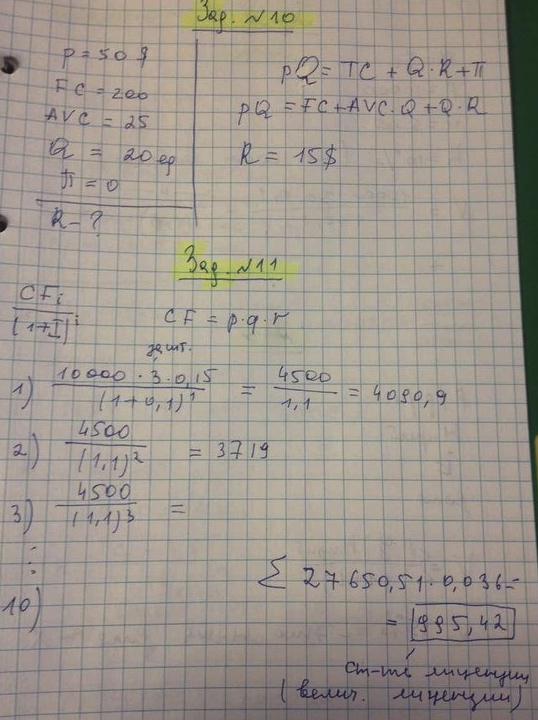 Зад. №10
p = 50 $
FC = 200
AVC = 25
Q = 20 ед
П = 0
R - ?
pQ = TC + Q·R + П
pQ = FC + AVC·Q + Q·R
R = 15$
Зад. №11
CFi / (1+I)^i
CF = p·q·r
за шт.
1) 10000 · 3 · 0,15 / (1+0,1)^1 = 4500 / 1,1 = 4090,9
2) 4500 / (1,1)^2 = 3719
3) 4500 / (1,1)^3 =
⋮
10)
Σ 27650,51 · 0,036 =
= 995,42
ст-ть лицензии
(велич. лицензии)